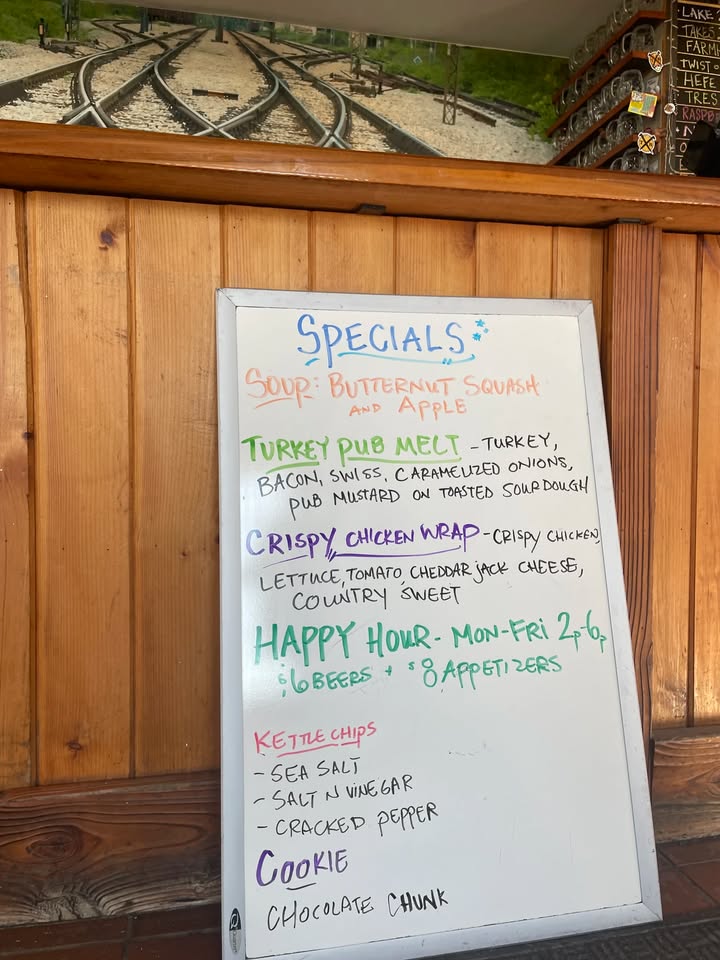 LAKE
TAKES
FARM
TWIST O
HEFE
TRES
RASPB
SPECIALS
SOUP: BUTTERNUT SQUASH
AND APPLE
TURKEY PUB MELT - TURKEY,
BACON, SWISS, CARAMELIZED ONIONS,
PUB MUSTARD ON TOASTED SOURDOUGH
CRISPY CHICKEN WRAP - CRISPY CHICKEN,
LETTUCE, TOMATO, CHEDDAR JACK CHEESE,
COUNTRY SWEET
HAPPY HOUR - MON-FRI 2p-6p
$6 BEERS + $8 APPETIZERS
KETTLE CHIPS
- SEA SALT
- SALT N VINEGAR
- CRACKED PEPPER
COOKIE
CHOCOLATE CHUNK